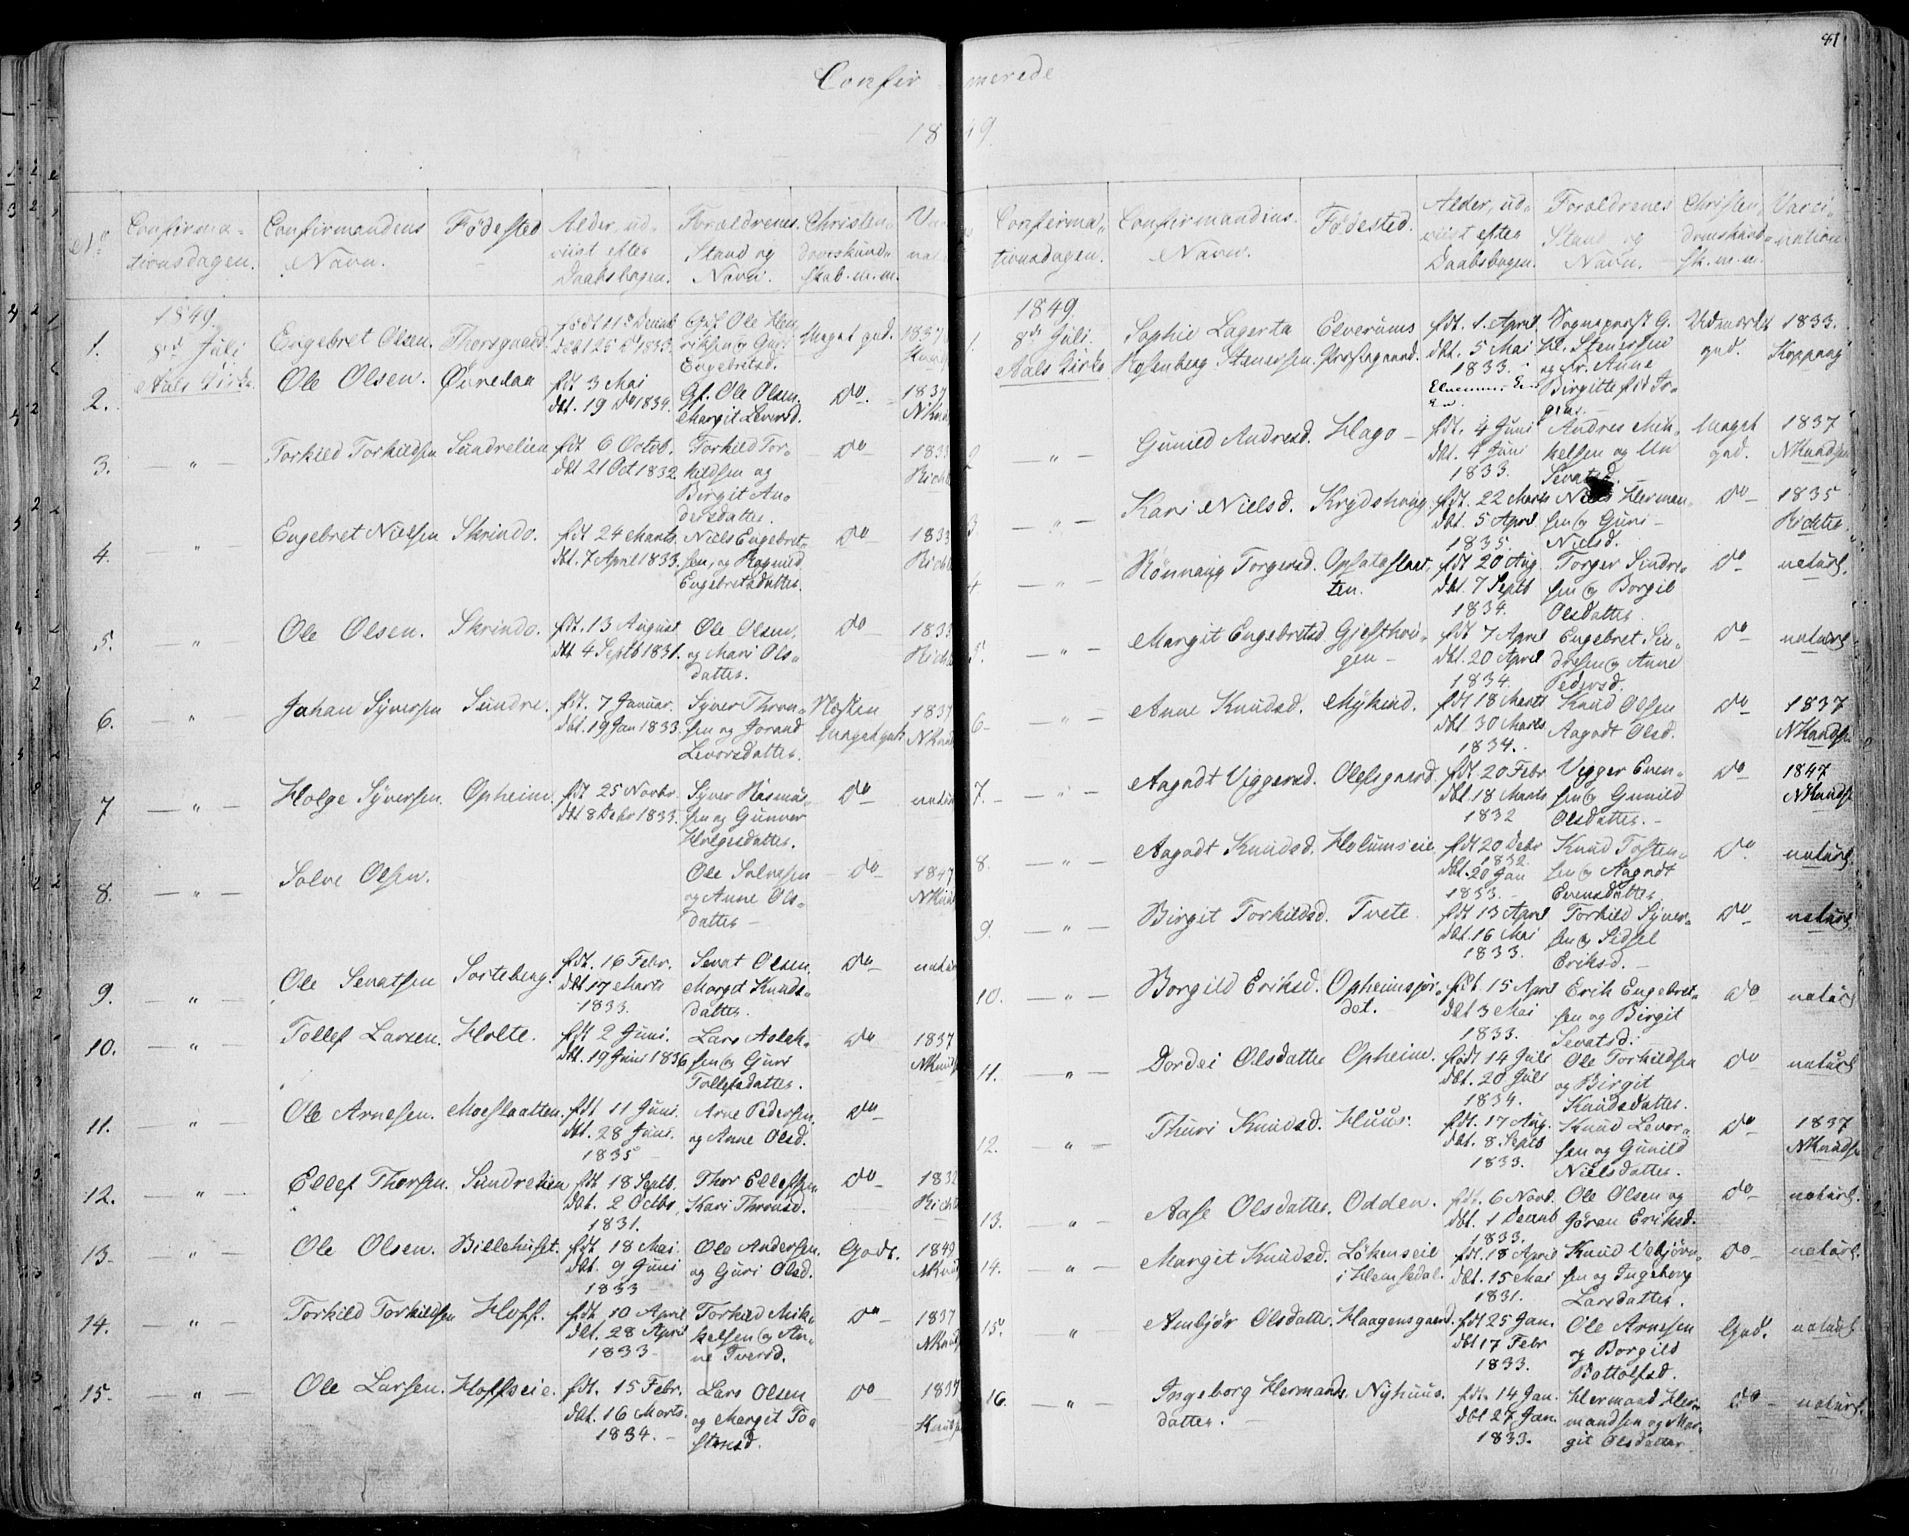 81
Confirmerede
1849.
No
Confirma-
tionsdagen.
Confirmandens
Navn.
Födested
Alder, ud-
viist efter
Daabsbogen.
Forældrenes
Stand og
Navn.
Christen-
domskund-
skab m.m.
1849.
8de Juli
Aals Kirke
1. Engebret Olsen. Thorsgaard
Gf. Ole Hen-
riksen og Guri
Engebretsd.
Meget god. 1837
2. Ole Olsen. Övredaa
fdt 3 Mai
dbt. 19 Do 1834.
Gf. Ole Olsen.
Margit Leversd.
Do. 1837
3. — " — Torkild Torkildsen Sundrelien
fdt 6 Octob.
dbt 21 Oct 1832
Torkild Tor-
kildsen og
Birgit An-
dersdatter.
Do
4. " — Engebret Nielsen Skrindo.
fdt 24 Marts
dbt. 7 April 1833.
Niels Engebret-
sen, og Ragnild
Engebretsdatter.
Do
5. — " Ole Olsen. Skrindo.
fdt. 13 August
dbt 4 Septb 1831.
Ole Olsen.
og Mari Ols-
datter.
Do
6. — " — Johan Syversen Sundre.
fdt. 7 Januar.
dbt. 19 Jan 1833.
Syver Thron-
sen og Jorand
Leversdatter.
Næsten
Meget godt
1837
7 — " — Holge Syversen. Opheim.
fdt 25 Novbr.
dbt 8 Debr 1833.
Syver Rasmus-
sen og Gunver
Holgesdatter.
Do
8. — " — Solve Olsen.
Ole Solvesen
og Anne Ols-
datter —
Do 1847
9. — " — Ole Sevatsen Sorteberg.
fdt. 16 Febr.
dbt 17 Marts
1833.
Sevat Olsen.
Margit Knuds-
datter.
Do
10. — " Tollef Larsen. Holte.
fdt 2 Juni.
dbt. 19 Juni 1836
Lars Aslak-
sen og Guri
Tollefsdatter.
Do 1837
11. — " Ole Arnesen. Moeslaatten.
fdt 11 Juni.
dbt. 28 Juni.
1835 —
Arne Pedersen.
og Anne Olsd.
Do
12. — " — Ellef Thorsen. Sundrelien
fdt 18 Septb.
dbt. 2 Octbr.
1831.
Thor Ellefsen
Kari Thronsd.
Do
13. — " — Ole Olsen. Billehuset.
fdt 18 Mai.
dbt. 9 Juni
1833
Ole Andersen.
og Guri Olsd.
Godt. 1849
14. — " — Torkild Torkildsen Hoff.
fdt. 10 April
dbt. 28 April
1833
Torkild Mik-
kelsen og An-
ne Iversd.
Do 1837
15. — " — Ole Larsen. Hoffseie.
fdt. 15 Febr.
dbt. 16 Marts.
1834. —
Lars Olsen
og Margit To-
stensd.
Do 1837
Confirma-
tionsdagen.
Confirmandens
Navn.
Födested.
Alder, ud-
viist efter
Daabsbogen.
Forældrenes
Stand og
Navn.
Christen-
domskund-
sk. m.m.
Vacci-
nation
1849.
8de Juli.
Aals Kirke
1. Sophie Lagerta
Rosenberg Stenersen.
Elverums
Præstegaard.
fdt. 1. April
dbt. 5 Mai
1833.
Sognepræst G.
H. Stenersen
og Fr. Anne
Birgitte
god. 1833.
— " — Gunild Andresd. Hago —
fdt. 4 Juni
dbt. 4 Juni
1833.
Andres Mik-
kelsen og
Sevatsd.
Meget
god.
1837
NKnudsen
3 — " — Kari Nielsd. Krydshoug
fdt. 22 Marts
dbt. 5 April
1835.
Niels Herman-
sen og Guri —
Nielsd.
Do 1835
Richter
4 — " — Rönnaug Torgersd. Opsataslaat-
ten.
fdt 20 Aug.
dbt. 7 Septb
1834.
Torger Sindre-
sen og Borgil
Olsdatter.
Do naturl.
5. — " — Margit Engebretsd Gjesthou-
gen —
fdt 7 April
dbt. 20 April
1834.
Engebret Sin-
dresen og Anne
Pedersd.
Do naturl
6 — " — Anne Knudsd. Mykind.
fdt 18 Marts
dbt. 30 Marts
1834.
Knud Olsen
Aagodt Olsd.
Do 1837
NKnudsen
7. — " — Aagodt Viggersd. Olelsgaard.
fdt. 20 Febr
dbt. 18 Marts
1832
Vigger Even-
sen og Gunild
Olsdatter. —
Do 1847
NKnudsen
8. — " — Aagodt Knudsd. Holumseie.
fdt 20 Debr
1832.
dbt. 20 Jan
1833. —
Knud Tosten-
sen og Aagodt
Evensdatter
Do. naturl.
9. — " — Birgit Torkildsd. Tvete.
fdt 13 April
dbt. 16 Mai
1833.
Torkild Syver-
sen og Sidsel
Eriksd. —
Do naturl.
10. — " — Borgild Eriksd. Opheimsjor-
det.
fdt 15 April
dbt 3 Mai
1833.
Erik Engebret-
sen og Birgit
Sevatsd.
Do naturl
11. — " — Dordei Olsdatter Opheim.
født 14 Juli
dbt. 20 Juli
1834.
Ole Torkildsen
og Birgit
Knudsdatter.
Do naturl
12. " — Thuri Knudsd. Huus.
fdt. 17 Aug.
dbt. 8 Septb
1833.
Knud Lever-
sen og Gunild
Nielsdatter.
Do 1837
NKnudsen
13. " — Aase Olsdatter. Odden.
fdt. 6 Novb.
dbt. 1 Decemb
1833.
Ole Olsen og
Jören Eriksd.
Do naturl.
14. — " — Margit Knudsd. Lökenseie
i Hemsedal.
fdt. 18 April
dbt. 15 Mai
1831.
Knud Vebjörn-
sen og Ingeborg
Larsdatter.
Do naturl.
15. " Ambjör Olsdatter. Haagensgaard.
fdt 25 Jan.
dbt 17 Febr
1833.
Ole Arnesen
og Borgild
Bottolfsd.
God. naturl
16. — " — Ingeborg Hermands-
datter. —
Nyhuus.
fdt. 14 Jan.
dbt 27 Jan.
1833.
Hermand Her-
mandsen og Mar-
git Olsdatter
Do — naturl.